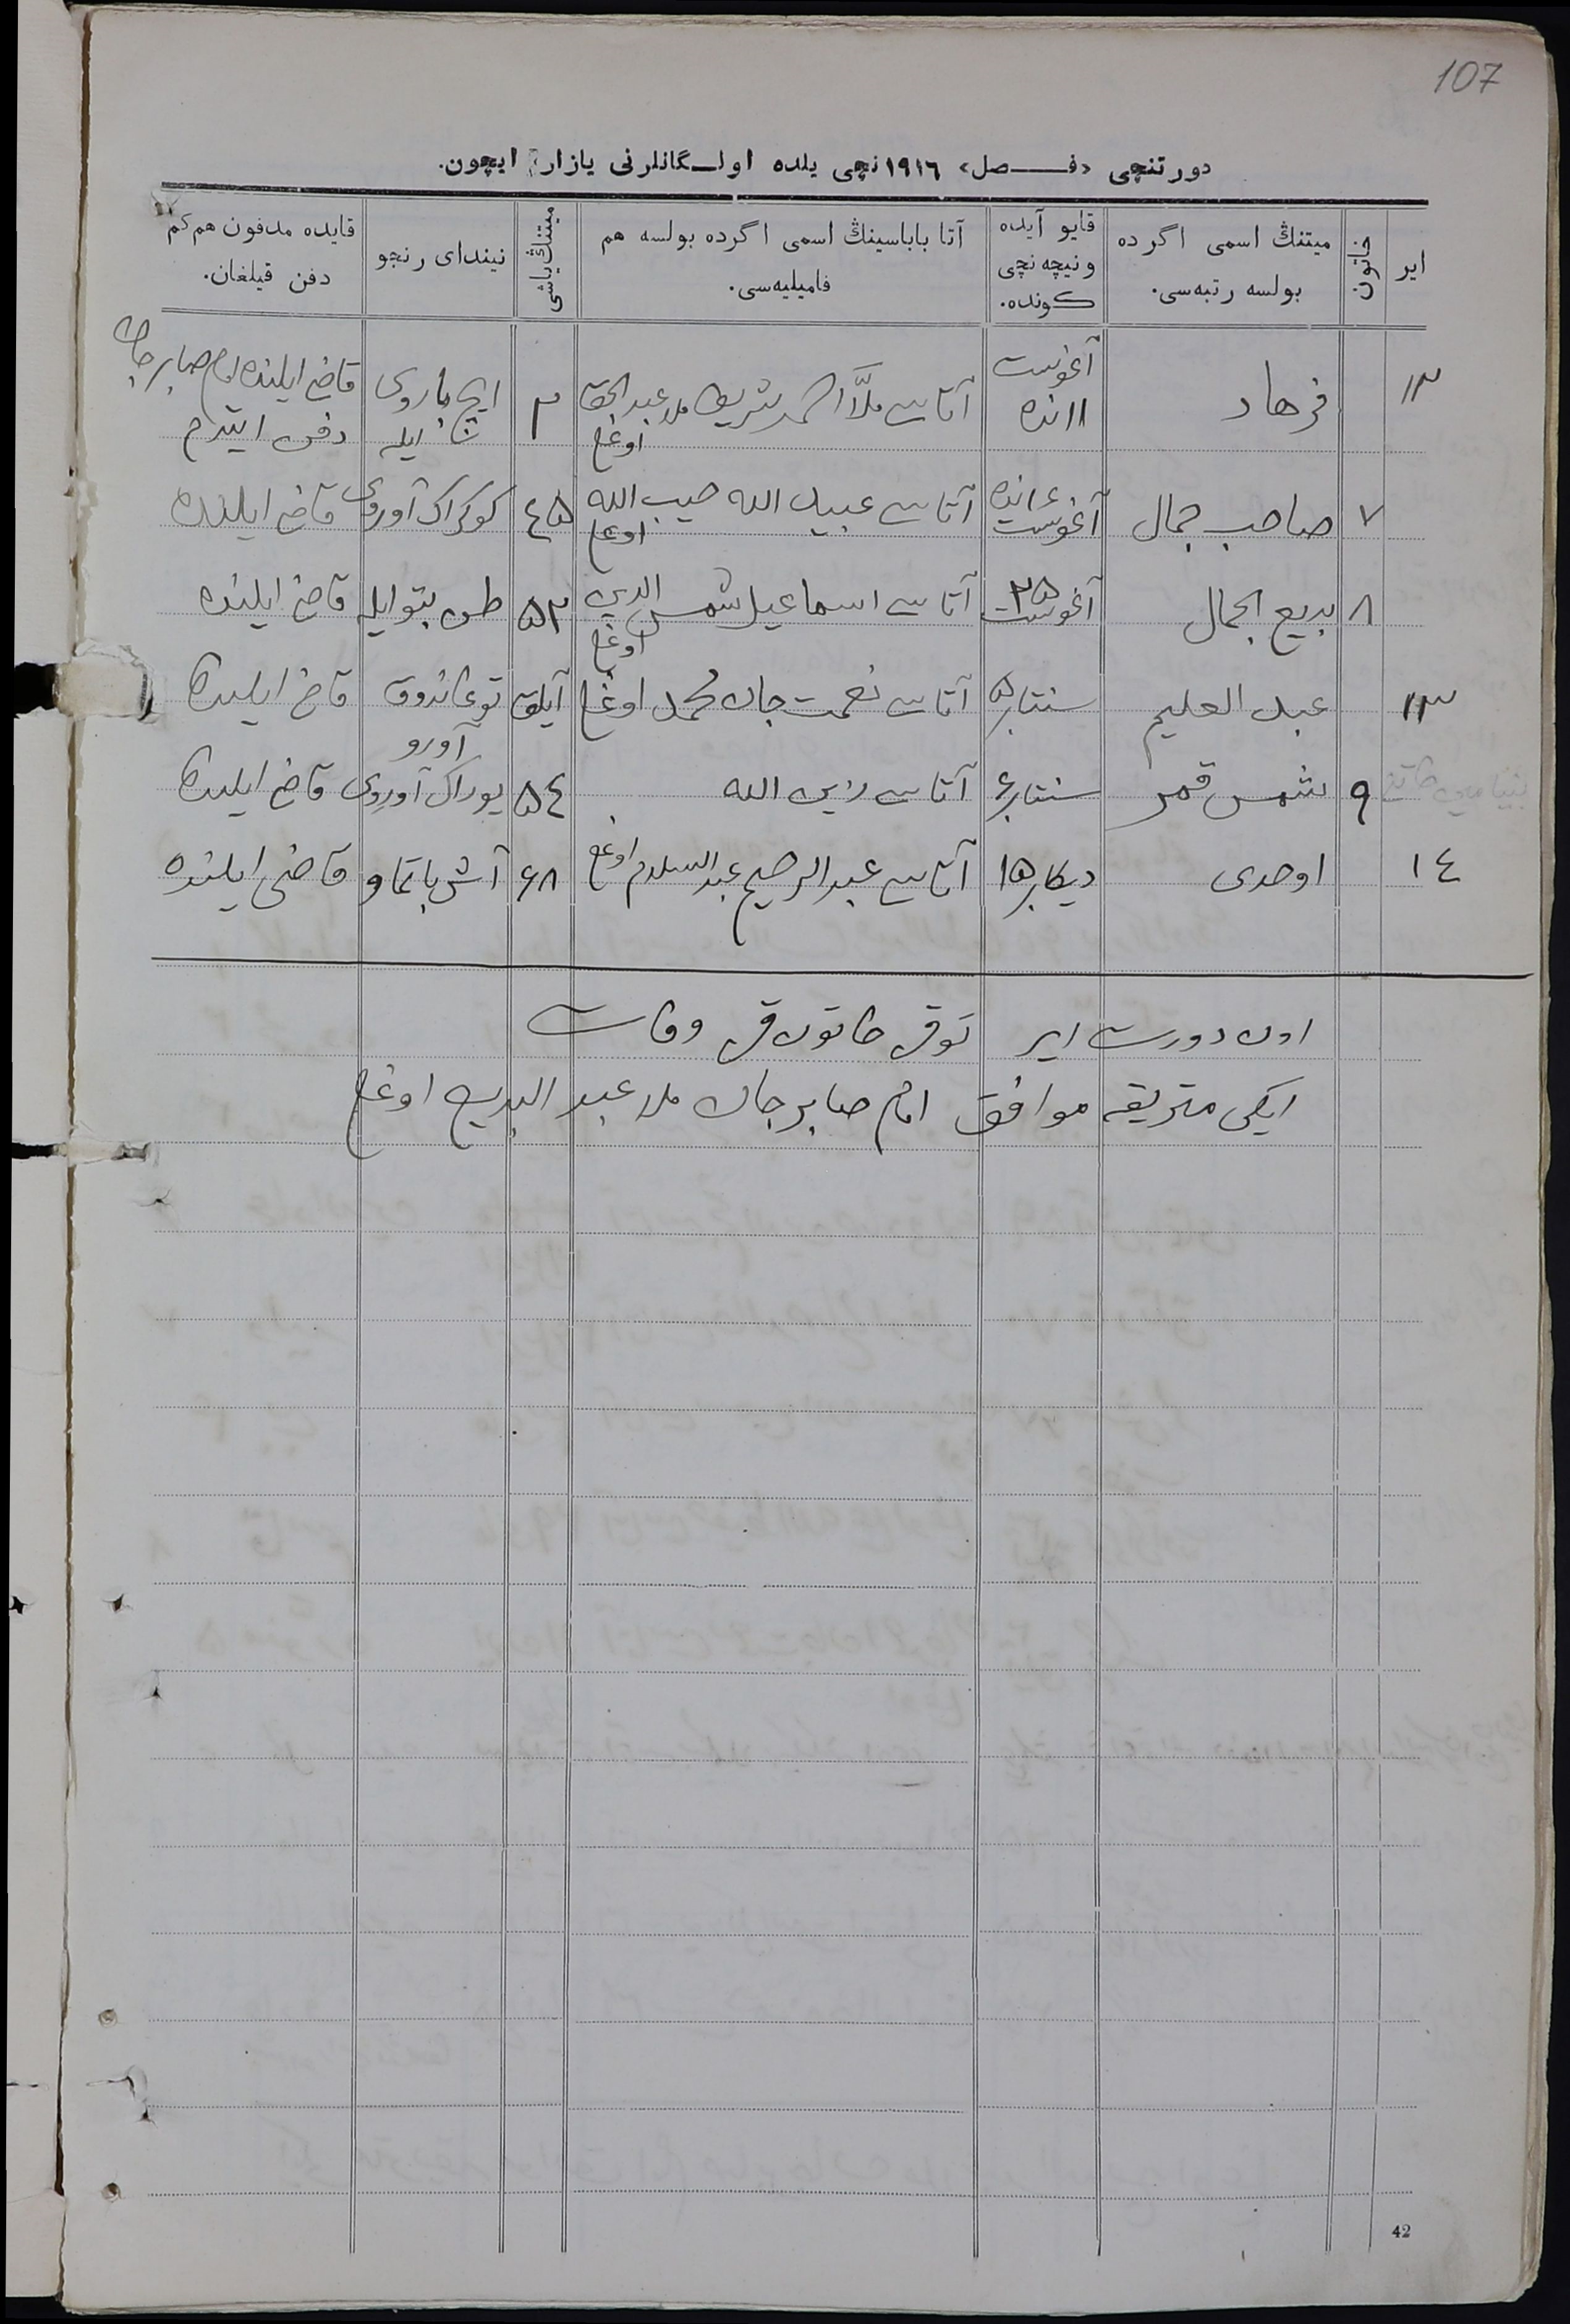 107
دورتنچی «فـــصل» ۱۹۱٦نچی یلده اولـگانلرنی یازار ایچون.
ایر
خاتون
میتنڭ اسمی اگرده
بولسه رتبه‌سی.
قایو آیده
ونیچه نچی
کونده.
آتا باباسینڭ اسمی اگرده بولسه هم
فامیلیه‌سی.
میتنڭ یاشی
نیندای رنجو
قایده مدفون هم کم
دفن قیلغان.
۱۳ فرهاد آغوست ۱۱نده آتاسی ملّا احمد شریف ملا عبد الحق اوغلی ۳ ایچ باروی ایله قاضی ایلنده امام صابرجان دفن ایتدم
۷ صاحب جمال ۱۶نده آغوست آتاسی عبید الله حبیب الله اوغلی ٤۵ کوکراک آوروی قاضی ایلنده
۸ بدیع الجمال ۲۵ آغوست آتاسی اسماعیل شمس الدین اوغلی ۵۳ طن بتو ایله قاضی ایلنده
۱۳ عبد العلیم سنتابر ۵ آتاسی نعمت جان محمد اوغلی آیلق توغاندوق آورو قاضی ایلنده
۹ شمس قمر سنتابر ۶ آتاسی زین الله ۵٤ یوراک آوروی قاضی ایلنده
۱٤ اوحدی دیکابر ۱۵ آتاسی عبد الرحیم عبد السلام اوغلی ۶۸ آش باتماو قاضی ایلنده
اون دورت ایر توقز خاتون وفات
ایکی متریقه موافق امام صابرجان ملا عبد البدیع اوغلی
42